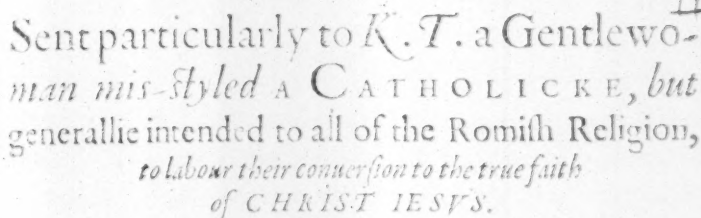 Sent particularly to K. T. a Gentlewo-
man mis-styled A CATHOLICKE, but
generallie intended to all of the Romish Religion,
to labour their conuersion to the true faith
of CHRIST IESVS.